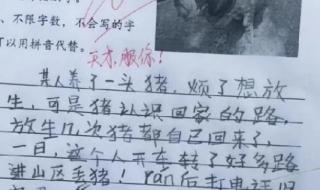 、不限字数,不会写的字
可以用拼音代替。
天才,服你!
某人养了一头猪,烦了想放
生,可是猪认识回家的路,
放生n次猪都自己回来了,
一日,这个人开车转了好多路
进山区丢猪! ran后打电话回